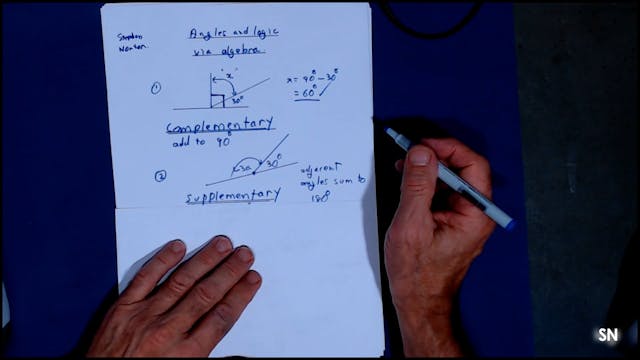 Stephen
Norton.
Angles and logic
via algebra
①
"x"
30°
x = 90° - 30°
= 60°
Complementary
add to 90°
②
30°
adjacent
angles sum to
180°
Supplementary
SN